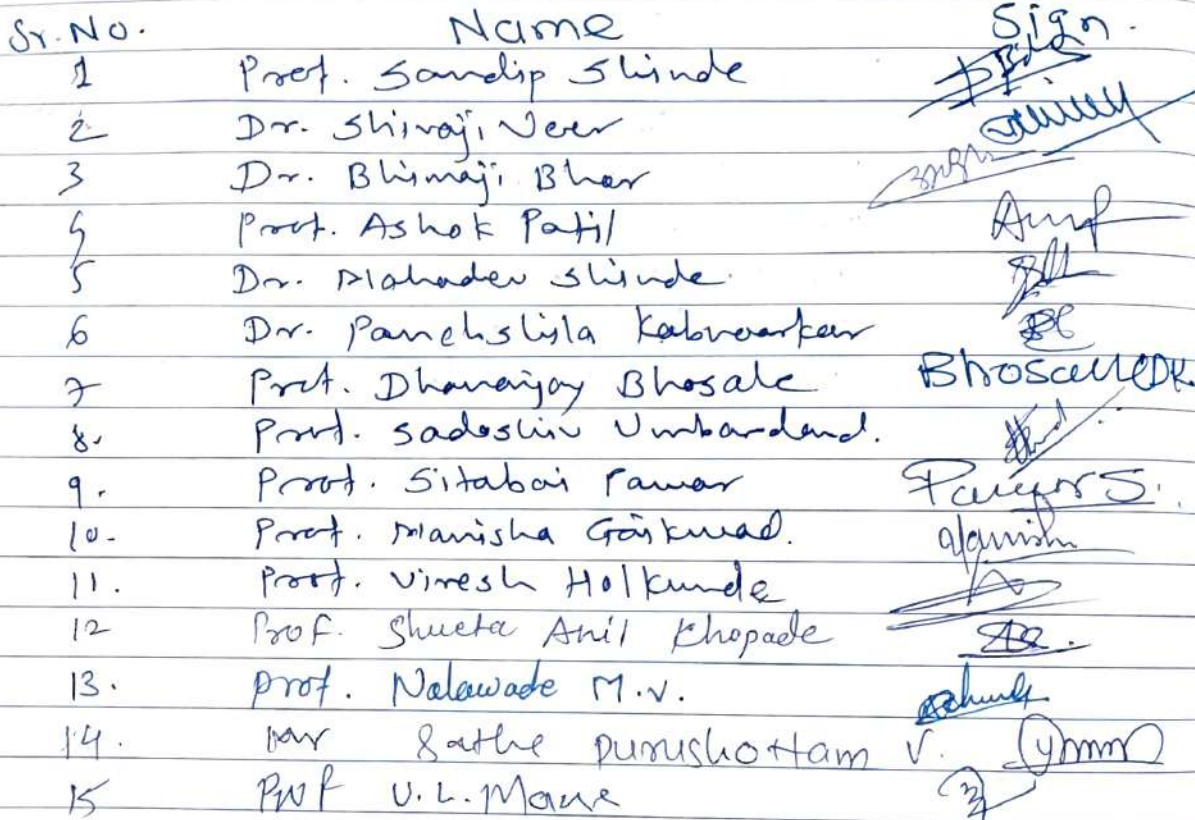 Sr. No. Name Sign.
1 Prof. Sandip Shinde
2 Dr. Shivaji Veer
3 Dr. Bhimaji Bhor
4 Prof. Ashok Patil
5 Dr. Mahadev Shinde
6 Dr. Panchshila Kabnoorkar
7 Prof. Dhananjay Bhosale Bhosale DK.
8. Prof. Sadashiv Umbardand.
9. Prof. Sitabai Pawar Pawar S.
10. Prof. Manisha Gaikwad.
11. Prof. Viresh Holkunde
12 Prof. Shweta Anil Khopade
13. Prof. Nalawade M.V.
14. Sathe Purushottam V.
15 Prof U.L. Mane